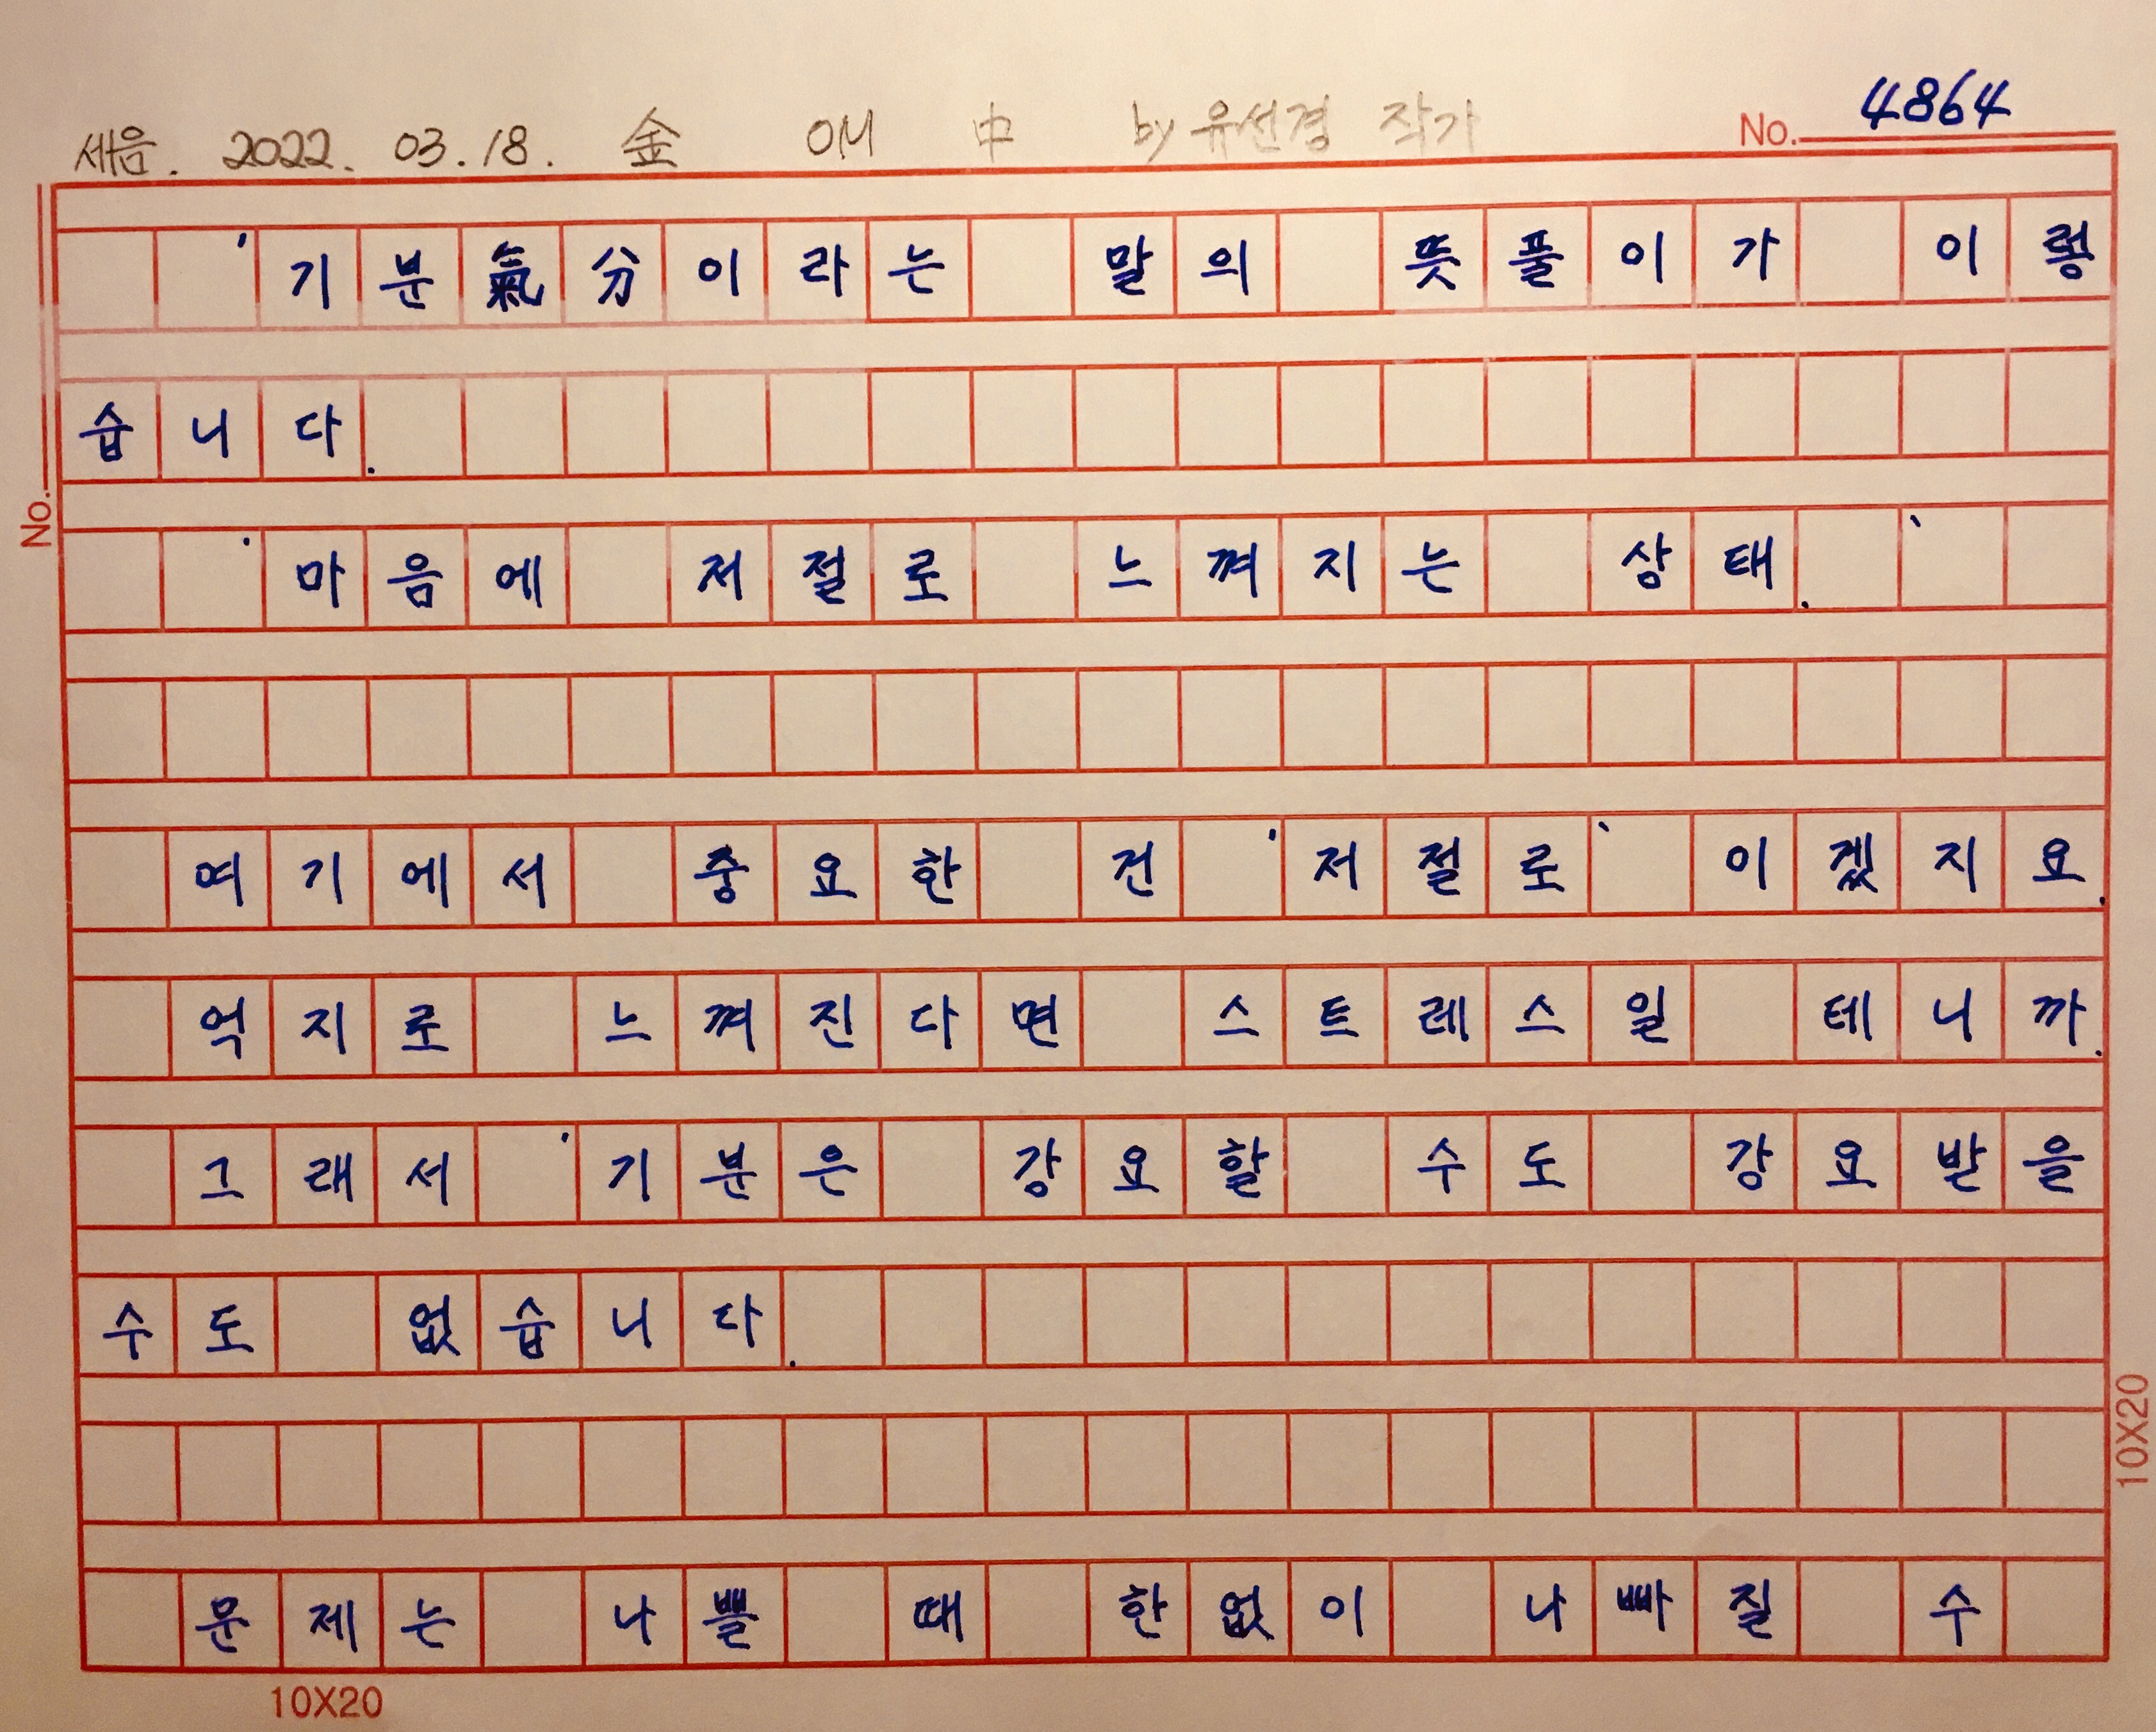 세음. 2022. 03. 18. 金 이서 中 by 유선경 작가 No. 4864
'기분氣分이라는 말의 뜻풀이가 이렇
습니다.
'마음에 저절로 느껴지는 상태.'
여기에서 중요한 건 '저절로' 이겠지요.
억지로 느껴진다면 스트레스일 테니까.
그래서 '기분은 강요할 수도 강요받을
수도 없습니다.
문제는 나쁠 때 한없이 나빠질 수
No.
10X20
10X20